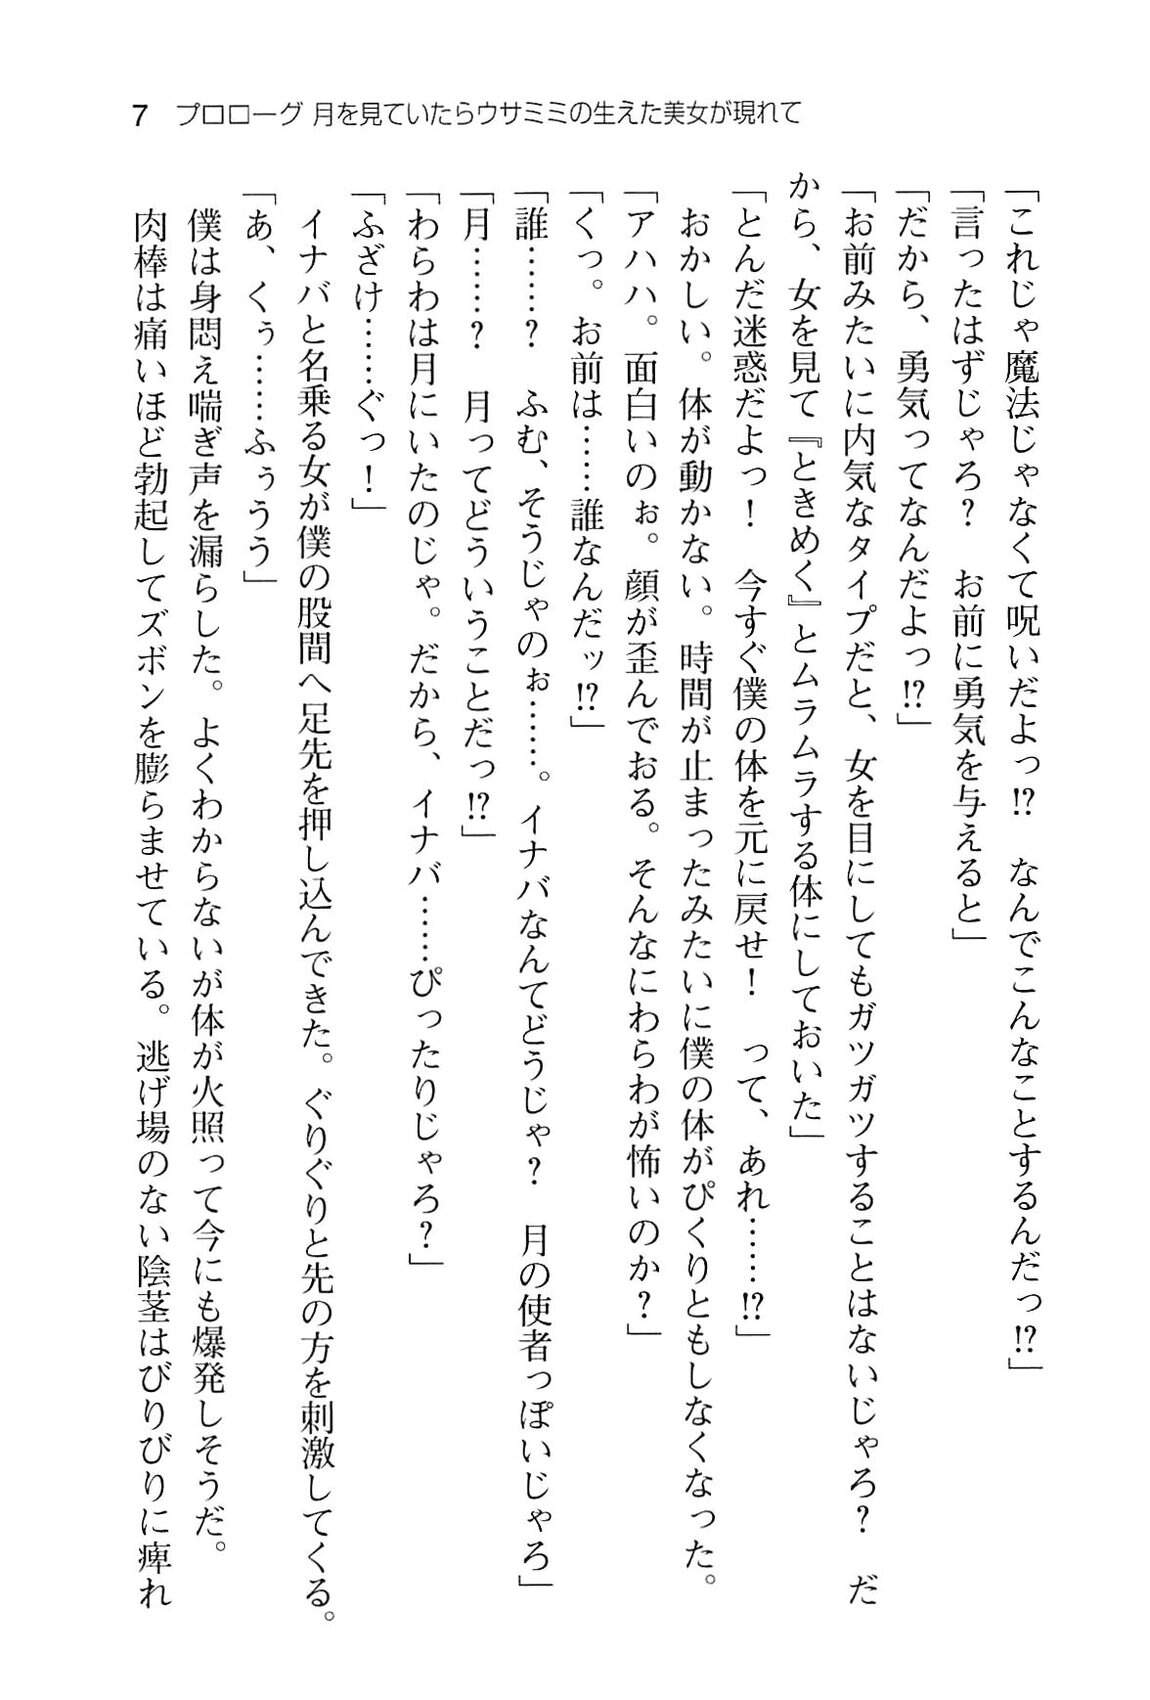 7　プロローグ 月を見ていたらウサミミの生えた美女が現れて
「これじゃ魔法じゃなくて呪いだよっ!?　なんでこんなことするんだっ!?」
「言ったはずじゃろ？　お前に勇気を与えると」
「だから、勇気ってなんだよっ!?」
「お前みたいに内気なタイプだと、女を目にしてもガツガツすることはないじゃろ？　だ
から、女を見て『ときめく』とムラムラする体にしておいた」
「とんだ迷惑だよっ！　今すぐ僕の体を元に戻せ！　って、あれ……!?」
おかしい。体が動かない。時間が止まったみたいに僕の体がぴくりともしなくなった。
「アハハ。面白いのぉ。顔が歪んでおる。そんなにわらわが怖いのか？」
「くっ。お前は……誰なんだッ!?」
「誰……？　ふむ、そうじゃのぉ……。イナバなんてどうじゃ？　月の使者っぽいじゃろ」
「月……？　月ってどういうことだっ!?」
「わらわは月にいたのじゃ。だから、イナバ……ぴったりじゃろ？」
「ふざけ……ぐっ！」
イナバと名乗る女が僕の股間へ足先を押し込んできた。ぐりぐりと先の方を刺激してくる。
「あ、くぅ……ふぅうう」
僕は身悶え喘ぎ声を漏らした。よくわからないが体が火照って今にも爆発しそうだ。
肉棒は痛いほど勃起してズボンを膨らませている。逃げ場のない陰茎はびりびりに痺れ